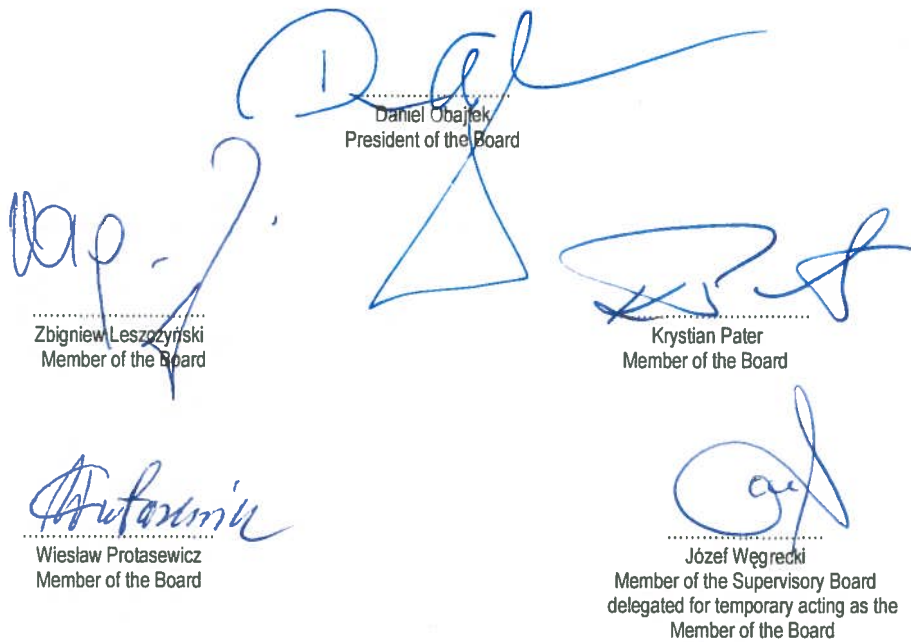 Daniel Obajtek
President of the Board
Zbigniew Leszczyński
Member of the Board
Krystian Pater
Member of the Board
Wiesław Protasewicz
Member of the Board
Józef Węgrecki
Member of the Supervisory Board
delegated for temporary acting as the
Member of the Board